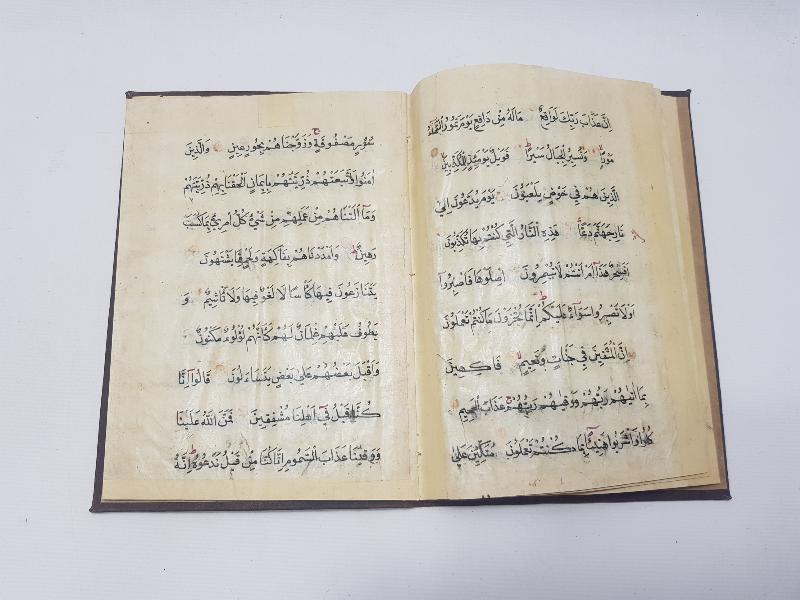 اِنَّ عَذَابَ رَبِّكَ لَوَاقِعٌ مَالَهُ مِنْ دَافِعٍ يَوْمَ تَمُورُ السَّمَاءُ
مَوْرًا وَتَسِيرُ الْجِبَالُ سَيْرًا فَوَيْلٌ يَوْمَئِذٍ لِلْمُكَذِّبِينَ
الَّذِينَ هُمْ فِي خَوْضٍ يَلْعَبُونَ يَوْمَ يُدَعُّونَ اِلَى
نَارِ جَهَنَّمَ دَعًّا هٰذِهِ النَّارُ الَّتِي كُنْتُمْ بِهَا تُكَذِّبُونَ
اَفَسِحْرٌ هٰذَا اَمْ اَنْتُمْ لَا تُبْصِرُونَ اِصْلَوْهَا فَاصْبِرُوا
اَوْ لَا تَصْبِرُوا سَوَاءٌ عَلَيْكُمْ اِنَّمَا تُجْزَوْنَ مَا كُنْتُمْ تَعْمَلُونَ
اِنَّ الْمُتَّقِينَ فِي جَنَّاتٍ وَنَعِيمٍ فَاكِهِينَ
بِمَا اٰتٰيهُمْ رَبُّهُمْ وَوَقٰيهُمْ رَبُّهُمْ عَذَابَ الْجَحِيمِ
كُلُوا وَاشْرَبُوا هَنِيئًا بِمَا كُنْتُمْ تَعْمَلُونَ مُتَّكِئِينَ عَلَى
سُرُرٍ مَصْفُوفَةٍ وَزَوَّجْنَاهُمْ بِحُورٍ عِينٍ وَالَّذِينَ
اٰمَنُوا وَاتَّبَعَتْهُمْ ذُرِّيَّتُهُمْ بِاِيمَانٍ اَلْحَقْنَا بِهِمْ ذُرِّيَّتَهُمْ
وَمَا اَلَتْنَاهُمْ مِنْ عَمَلِهِمْ مِنْ شَيْءٍ كُلُّ امْرِئٍ بِمَا كَسَبَ
رَهِينٌ وَاَمْدَدْنَاهُمْ بِفَاكِهَةٍ وَلَحْمٍ مِمَّا يَشْتَهُونَ
يَتَنَازَعُونَ فِيهَا كَأْسًا لَا لَغْوٌ فِيهَا وَلَا تَأْثِيمٌ وَ
يَطُوفُ عَلَيْهِمْ غِلْمَانٌ لَهُمْ كَاَنَّهُمْ لُؤْلُؤٌ مَكْنُونٌ
وَاَقْبَلَ بَعْضُهُمْ عَلٰى بَعْضٍ يَتَسَاءَلُونَ قَالُوا اِنَّا
كُنَّا قَبْلُ فِي اَهْلِنَا مُشْفِقِينَ فَمَنَّ اللّٰهُ عَلَيْنَا
وَوَقٰينَا عَذَابَ السَّمُومِ اِنَّا كُنَّا مِنْ قَبْلُ نَدْعُوهُ اِنَّهُ